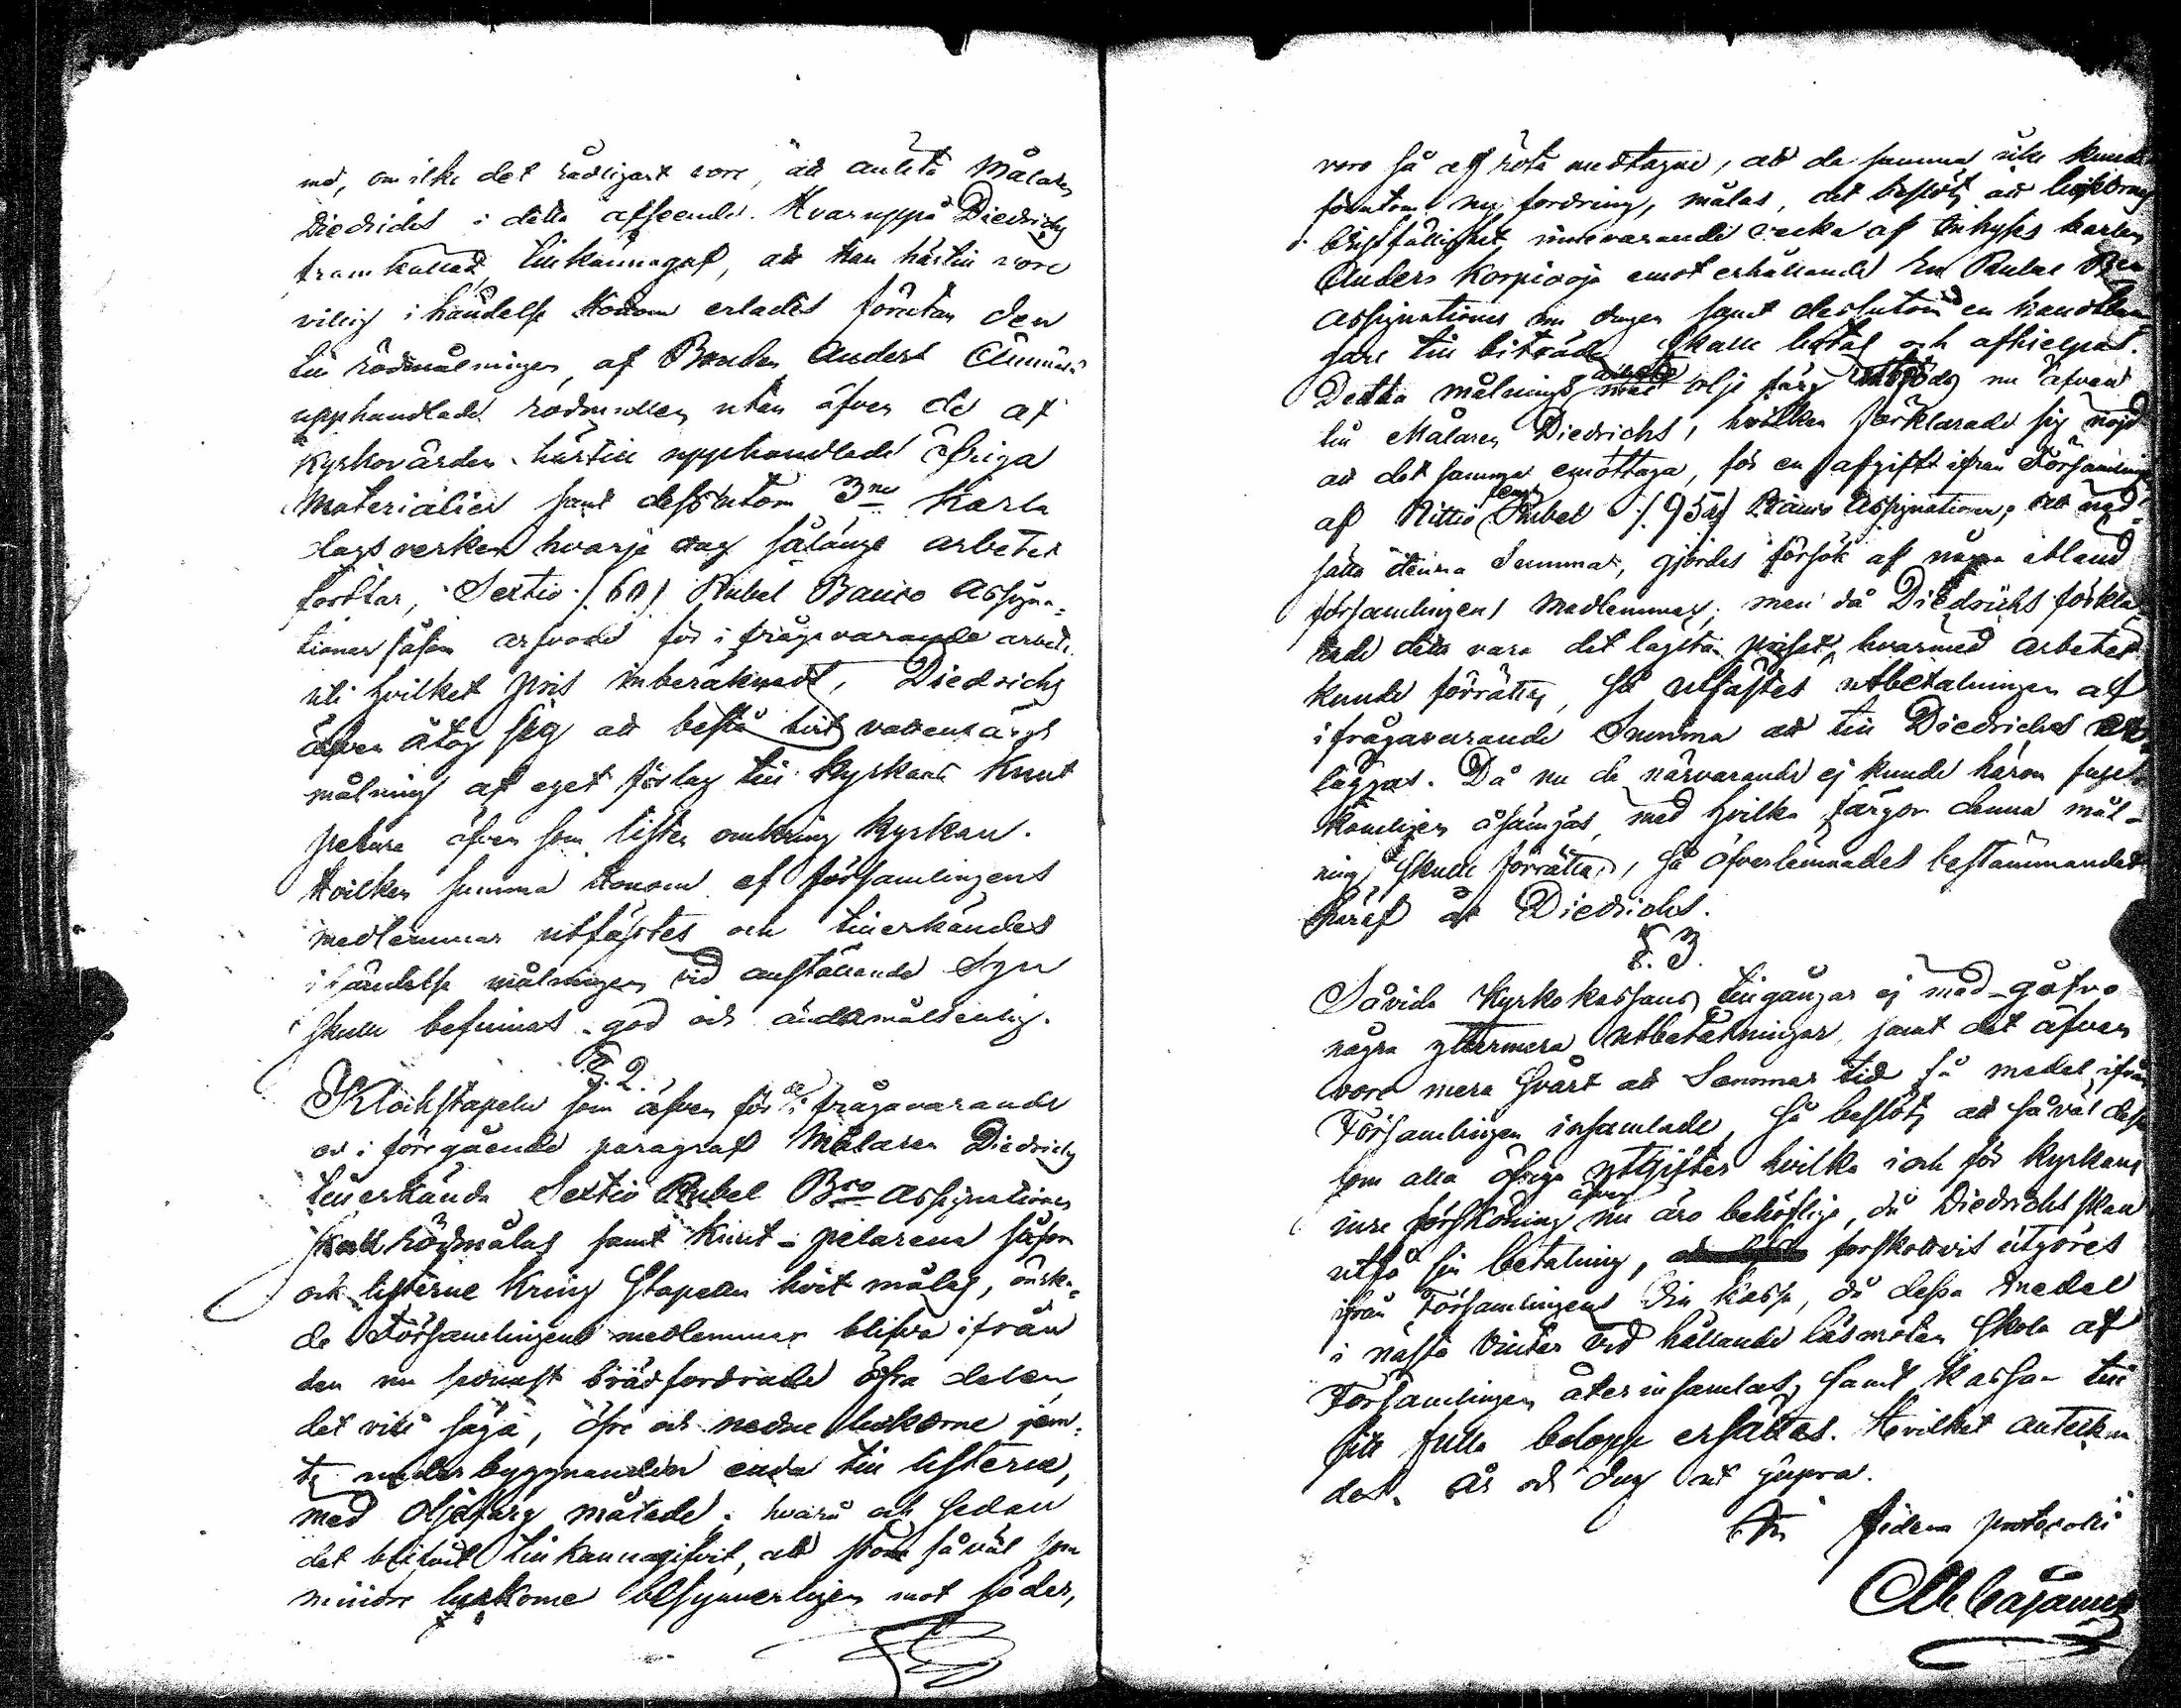 med, om icke det rådligast vore, att anlita Målaren
Diedrichs i detta afseende. Hvaruppå Diedrichs
framkallad, tillkännagaf, att Han härtill vore
villig i händelse Honom erlades förutan den
till rödmålningen, af Bonden Anders
upphandlade rödmullen utan äfven de af
Kyrkovärden härtill upphandlade öfriga
Materialier samt dessutom 3ne Karla
dagsverken hvarje dag sålänge arbetet
fortfar, Sextio /60/ Rubel Banco Assigna-
tioner såsom arfvode för i fråga varande arbete
uti hvilket pris inberäknadt, Diedrichs
äfven åtog sig att bestå hvit vattenfärgs
målning af eget förlag till Kyrkans Knut
pelare äfven som lister omkring Kyrkan.
Hvilken summa Honom af församlingens
medlemmar utfästes och tillerkändes
i händelse målningen vid anställande Syn
skulle befinnas god och ändamålsenlig.
§. 2.
Klockstapeln som äfven för de i frågavarande
och i föregående paragraf Målaren Diedrichs
tillerkända Sextio Rubel Bco Assignationer
skall rödmålas samt Knut-pelarena såsom
och listerne kring Stapeln hvit målas, önska-
de Församlingens medlemmar blifva ifrån
den nu sednast brädfordrade öfra delen
det vill säga, öfre och nedre luckorne jem-
te underbyggnanden ända till listerne,
med Oljefärg målade; hvarå och sedan
det blifvit tillkännagifvit, att större såväl som
mindre luckorne besynnerligen mot söder,
voro så af röta medtagne, att de samma icke kunde
förutom ny fordring, målas, det beslöts att luckornes
bristfällighet innevarande vecka af Inhyses karlen
Anders Korpioja emot erhållande En Rubel Bco
Assignationer om dagen samt dessutom en handtlan-
gare till biträde skall botas och afhielpas.
Detta målnings arbete olje färg nu äfven
till Målaren Diedrichs, hvilken förklarade sig nöjd
att det samma emottaga, för en afgift ifrån Församlingen
af Nittio fem Rubel /95/ Banco Assignationer, att ned-
sätta denna Summa, gjordes försök af några ibland
församlingens Medlemmar, men då Diedrichs förkla-
rade detta vara det lägsta priset, hvarmed arbetet
kunde förrättas, så utfästes utbetalningen af
ifrågavarande Summa att till Diedrichs er-
läggas. Då nu de närvarande ej kunde härom
komligen åsämjas, med hvilka färgor denna mål-
ning skulle förrättas, så öfverlämnades bestämmandet
häraf åt Diedrichs.
§. 3.
Såvida Kyrkokassans tillgångar ej med-gåfvo
några yttermera utbetalningar, samt det äfven
vore mera svårt att Sommar tid få medel ifrån
Församlingen insamlade, så beslöts att såväl dessa
som alla öfriga utgifter hvilka i och för Kyrkans
inre försköning äfven nu äro behöflige, då Diedrichs skall
utfå sin betalning, förskottvis utgöres
ifrån Församlingens Din kassa, då dessa medel
i nästa Vinter vid hållande läsmöten skola af
Församlingen återinsamlas, samt kassan till
sitt fulla belopp ersättas. Hvilket anteckna-
des. År och Dag ut supra.
In fidem protocolli
Cajanus